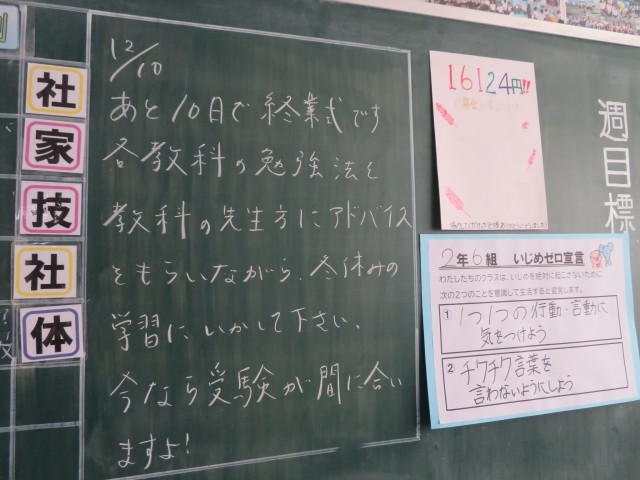 社
家
技
社
体
12/10
あと10日で終業式です
各教科の勉強法を
教科の先生方にアドバイス
をもらいながら、冬休みの
学習にいかして下さい。
今なら受験が間に合い
ますよ!
16124円!!
週目標
2年6組 いじめゼロ宣言
わたしたちのクラスは、いじめを絶対に起こさないために
次の2つのことを意識して生活すると宣言します。
① 1つ1つの行動・言動に
気をつけよう
2 チクチク言葉を
言わないようにしよう